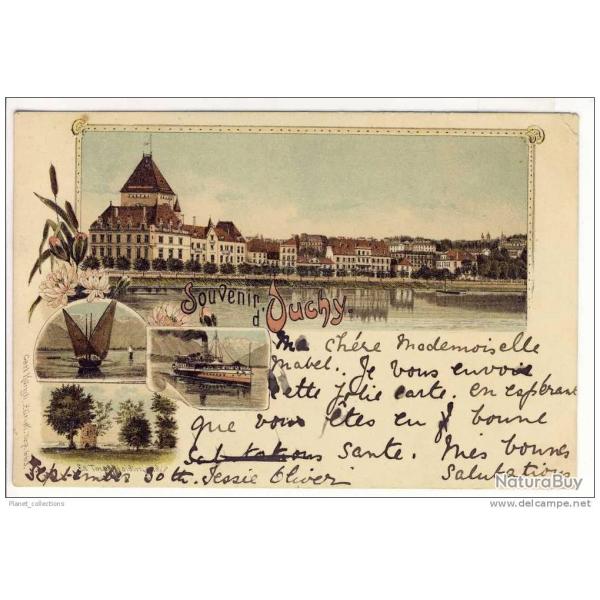 Souvenir
d'Ouchy.
Ma chére Mademoiselle
Mabel. Je vous envoie
cette jolie carte. en espérant
que vous êtes en bonne
Salutations Sante. Mes bonnes
September 30th. Jessie Oliver Salutations
NaturaBuy
Planet_collections
www.delcampe.net